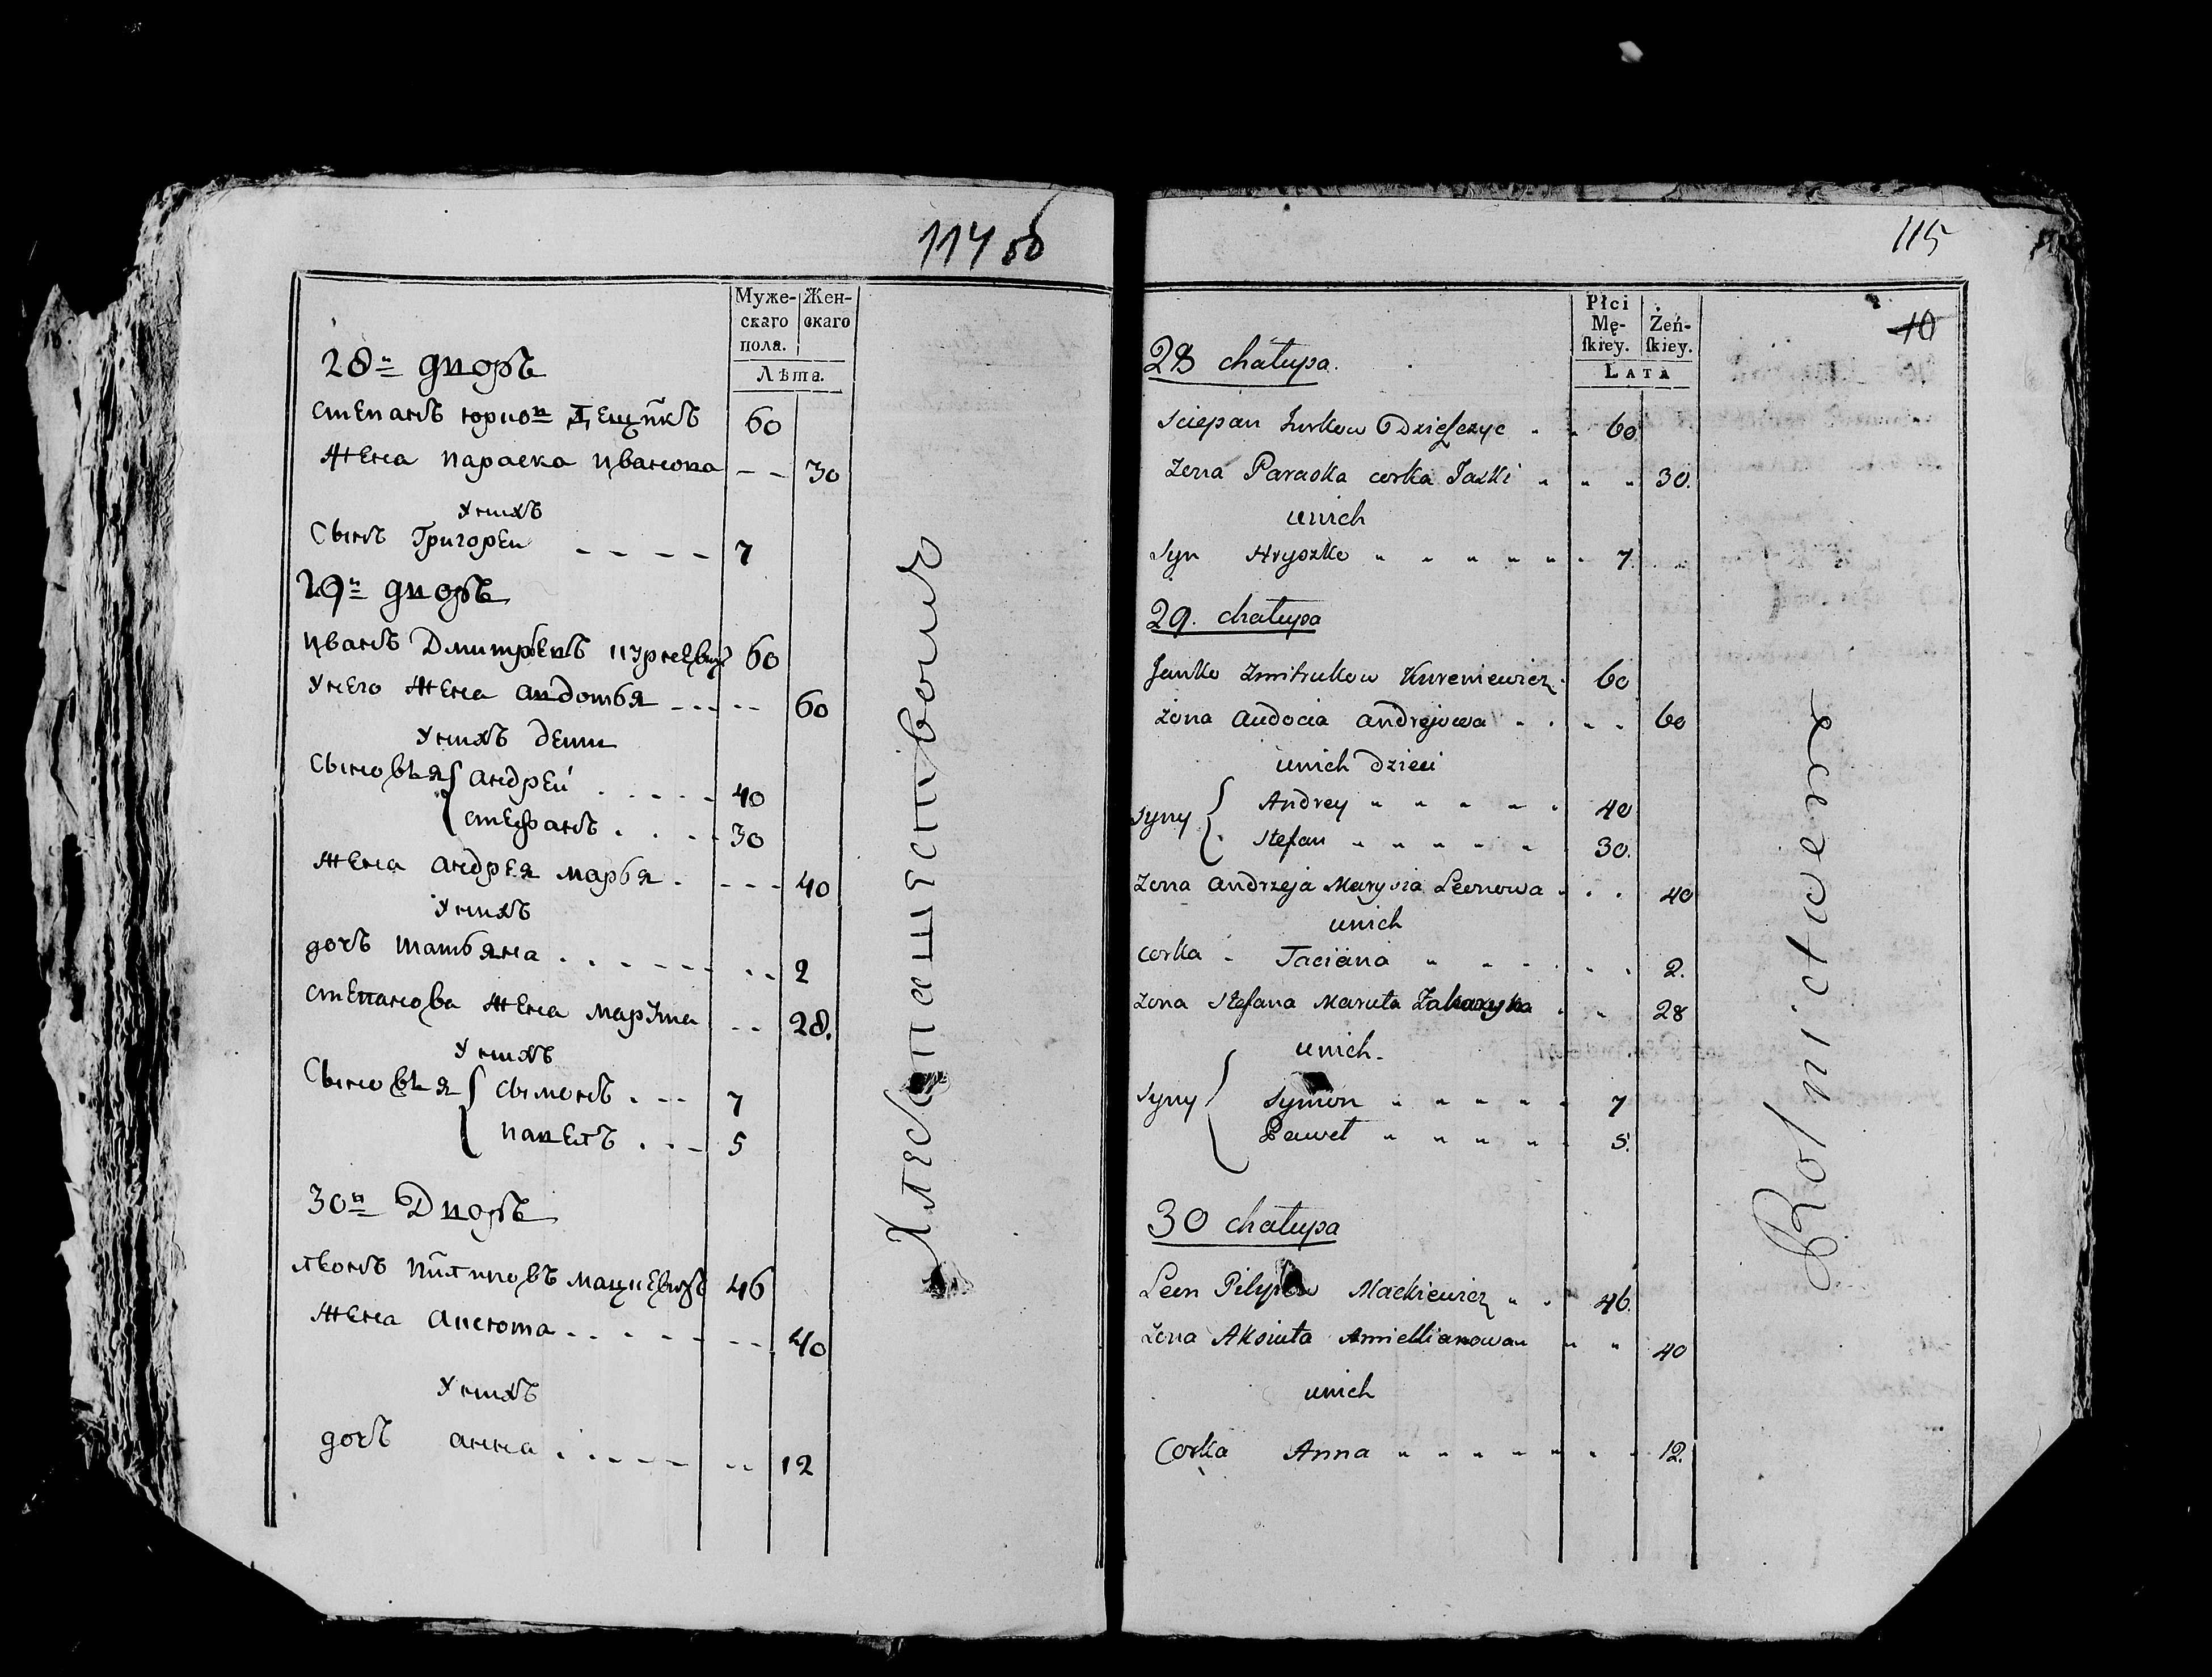 114 об
Муже- Жен-
скаго скаго
пола.
Лѣта.
28й дворъ
степанъ юрков 60
жена параска ивано­ва — — 30
у нихъ
Сынъ Григореи — — — — 7
29й дворъ
иванъ Дмитрѣевъ 60
у него жена авдотья — — — 60
у нихъ дети
сыновья { андреи . . . . 40
стефанъ . . . . 30
жена андрея марья . - - - 40
у нихъ
дочъ татьяна . . . . . . 2
степанова жена марута - - 28.
у нихъ
Сыновья { сымонъ . - - 7
павелъ . . - 5
30й Дворъ
леонъ пилиповъ мацкевичъ 46
жена аксюта . . . . . 40
у нихъ
дочъ анна . . . . . 12
Хлебопашествомъ
115
10
Płci
Mę- Żeń-
ſkiey. ſkiey.
LATA
28 chałupa.
Sciepan Jurkow Odzieſczyc " " 60
Zona Paraska corka Jaski " " " 30.
unich
Syn Hryszko " " " " " 7
29. chałupa
Janko Zmitrukow Kureniewicz 60
zona Audocia Andrejowa - . . . 60
unich dzieci
Syny { Andrey " " " " " 40
Stefan " " " " " 30.
Zona Andrzeja Marysia Leonowa . . . 40
unich
corka - Taciana " " " . . . 2.
zona Stefana Maruta . " 28
unich.
Syny { Symon " " " " " 7
Paweł " " " " " 5.
30 chałupa
Leon Pilypow Mackiewicz " . 46.
Zona Aksiuta Amiellianowau " " 40
unich
Corka Anna " " " " " " " " 12.
Rolnictwem